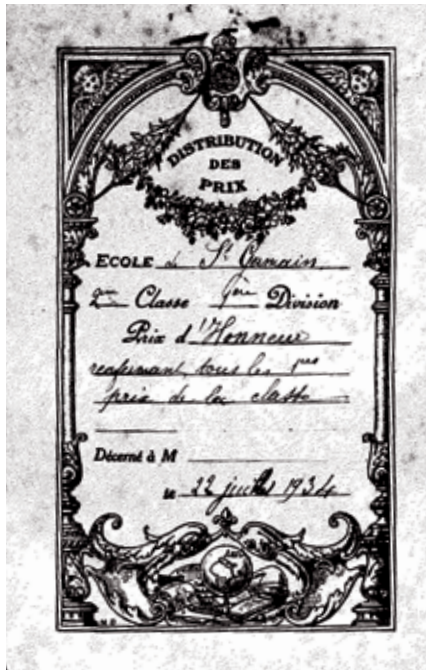 DISTRIBUTION
DES
PRIX
ECOLE de St Germain
2me Classe 1ère Division
Prix d'Honneur
résumant tous les 1ers
prix de la classe
Décerné à M
le 22 juillet 1934